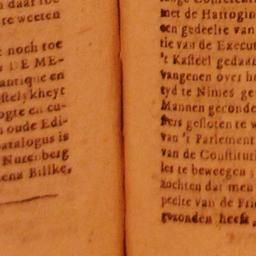 n daar toe
te weeten
t noch toe
DE ME-
antique en
stelykheyt
ogte en cu-
n oude Edi-
atalogus is
Nurenberg
ena Billke,
met de Hartogin
een gedeelte van
tie van de Execut
't Kasteel gedaa
vangenen over h
tyd te Nimes ge
Mannen geconde
gesloten te w
van 't Parlement
van de Constitut
les te beweegen
zochten dat men
peelte van de Frie
gezonden heeft,